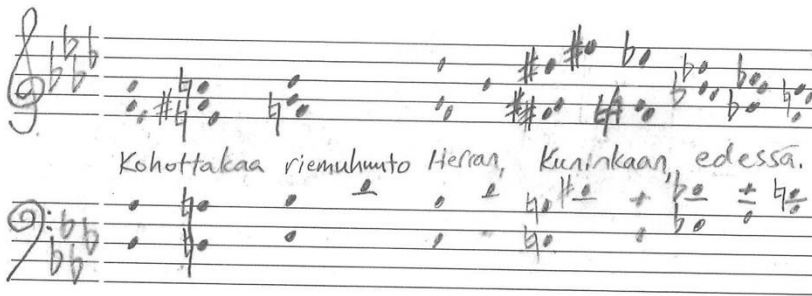 Kohottakaa riemuhuuto Herran, Kuninkaan, edessä.